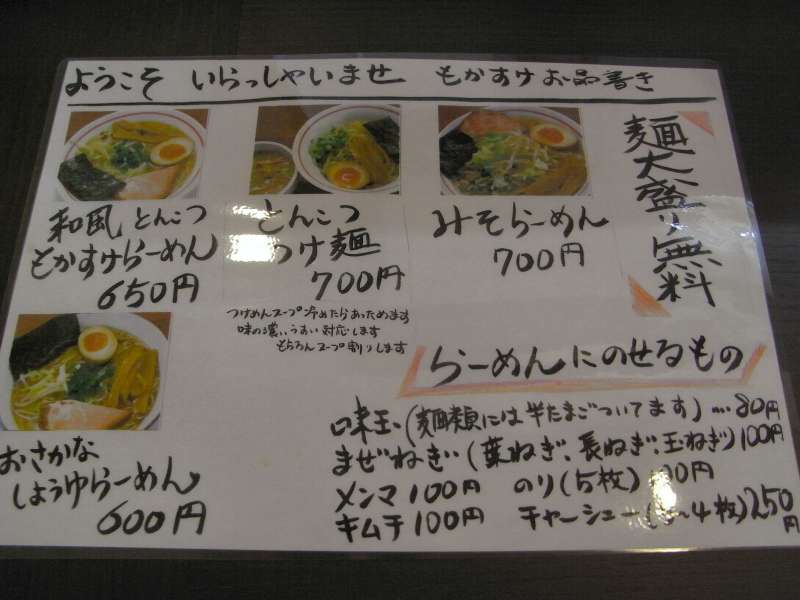 ようこそ いらっしゃいませ もかすけお品書き
和風とんこつ
もかすけらーめん
650円
とんこつ
つけ麺
700円
つけめんスープ冷めたらあっためます
味の濃い、うすい対応します
もちろんスープ割りします
みそらーめん
700円
麺大盛り無料
おさかな
しょうゆらーめん
600円
らーめんにのせるもの
味玉(麺類には半たまごついてます)…80円
まぜねぎ(葉ねぎ、長ねぎ、玉ねぎ)100円
メンマ100円 のり(5枚) 00円
キムチ100円 チャーシュー(～4枚)250円